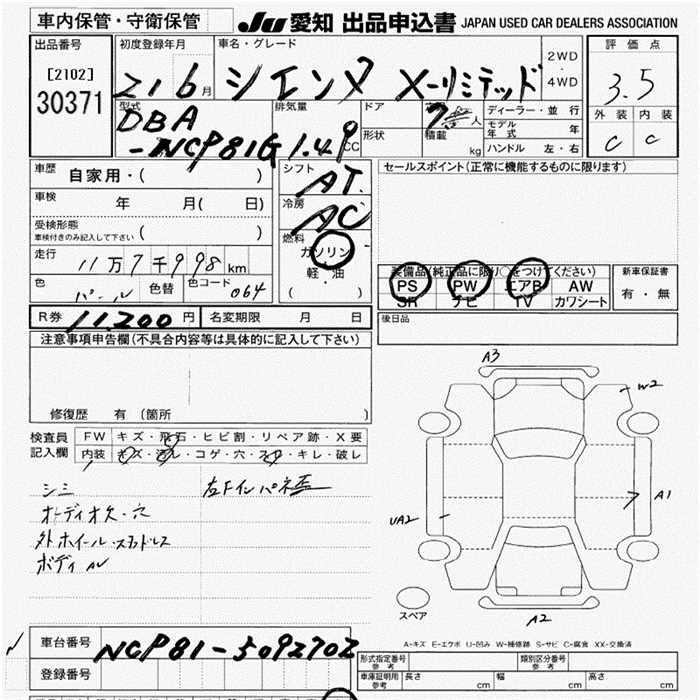 車内保管・守衛保管
JU 愛知 出品申込書 JAPAN USED CAR DEALERS ASSOCIATION
出品番号
[2102]
30371
初度登録年月
21 6 月
車名・グレード
シエンタ X-リミテッド
2WD
・
4WD
評価点
3.5
外装 内装
C C
型式
DBA
-NCP81G
排気量
1.49 CC
ドア
形状
7 人
積載 kg
ディーラー・並行
モデル年式 年
ハンドル 左・右
車歴 自家用・( )
車検 年 月( 日)
受検形態
車検付きのみ記入して下さい ( )
走行 11万7千998 km
色 パール 色替 色コード 064
シフト AT
冷房 AC
燃料
ガソリン
軽・油
( )
セールスポイント(正常に機能するものに限ります)
装備品(純正品に限り○をつけてください)
PS PW エアB AW
SR ナビ TV カワシート
新車保証書
有・無
後日品
R券 11,200 円 名変期限 月 日
注意事項申告欄(不具合内容等は具体的に記入して下さい)
修復歴 有 (箇所 )
検査員
記入欄
FW キズ・飛石・ヒビ割・リペア跡・X要
内装 キズ・汚レ・コゲ・穴・スレ・キレ・破レ
シミ
オーディオ欠・穴
外ホイール・スタッドレス
ボディ AU
A3
W2
A1
UA2
A2
スペア
A-キズ E-エクボ U-凹み W-補修跡 S-サビ C-腐食 XX-交換済
車台番号 NCP81-5092702
登録番号
形式指定番号
参考
類別区分番号
参考
車庫証明用
参考
長さ cm 幅 cm 高さ cm